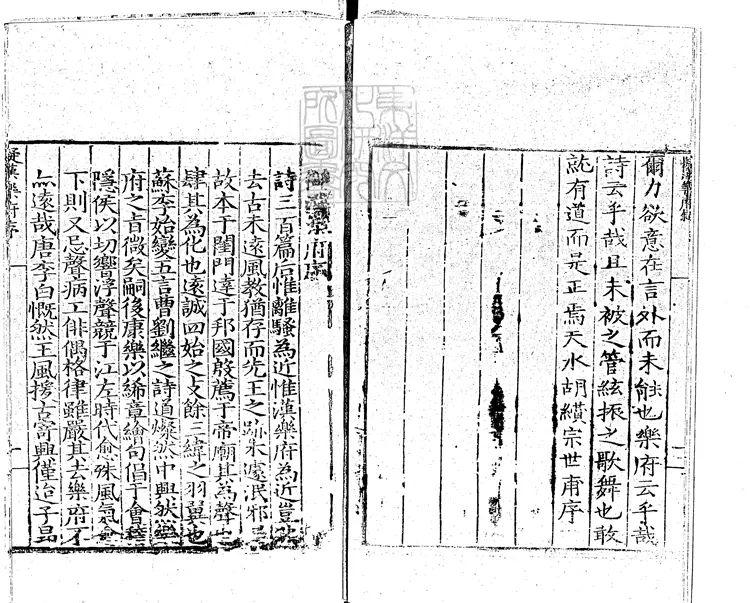 爾力欲意在言外而未能也樂府云乎哉
詩云乎哉且未被之管絃振之歌舞也敢
就有道而是正焉天水胡纘宗世甫序
漢樂府
詩三百篇后惟離騷為近惟漢樂府為近豈
去古未遠風教猶存而先王之跡未遽泯邪
故本于閨門達于邦國殷薦于帝廟其為聲也
肆其為化也遠誠四始之文餘三緯之羽翼也
蘇李始變五言曹劉繼之詩道燦然中興然
府之旨微矣嗣後康樂以絺章繪句倡于會稽
隱侯以切響浮聲競于江左時代愈殊風氣
下則又忌聲病工俳偶格律雖嚴其去樂府不
亦遠哉唐李白慨然王風援古寄興僅迨子昂
漢樂府序